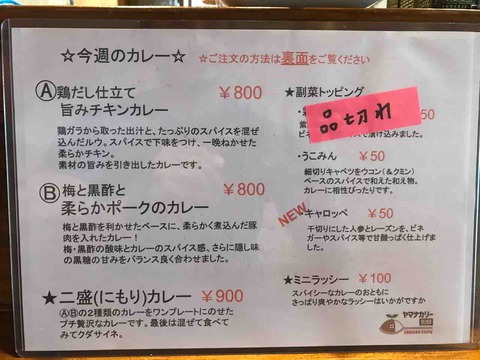 ☆今週のカレー☆
☆ご注文の方法は裏面をご覧ください
Ⓐ鶏だし仕立て ￥800
旨みチキンカレー
鶏ガラから取った出汁と、たっぷりのスパイスを混ぜ
込んだルウ。スパイスで下味をつけ、一晩ねかせた
柔らかチキン。
素材の旨みを引き出したカレーです。
Ⓑ梅と黒酢と ￥800
柔らかポークのカレー
梅と黒酢を利かせたベースに、柔らかく煮込んだ豚
肉を入れたカレー！
梅・黒酢の酸味とカレーのスパイス感、さらに隠し味
の黒糖の甘みをバランス良く合わせました。
★二盛(にもり)カレー ￥900
ⒶⒷの2種類のカレーをワンプレートにのせた
プチ贅沢なカレーです。最後は混ぜて食べ
てみてクダサイネ。
★副菜トッピング
品切れ
漬け込みました。
・うこみん ￥50
細切りキャベツをウコン(＆クミン)
ベースのスパイスで和えた和え物。
カレーに相性ぴったりです。
NEW
・キャロッペ ￥50
千切りにした人参とレーズンを、ビネ
ガーやスパイス等で甘酸っぱく仕上げま
した。
★ミニラッシー ￥100
スパイシーなカレーのおともに
さっぱり爽やかなラッシーはいかがですか
ヤマナカリー